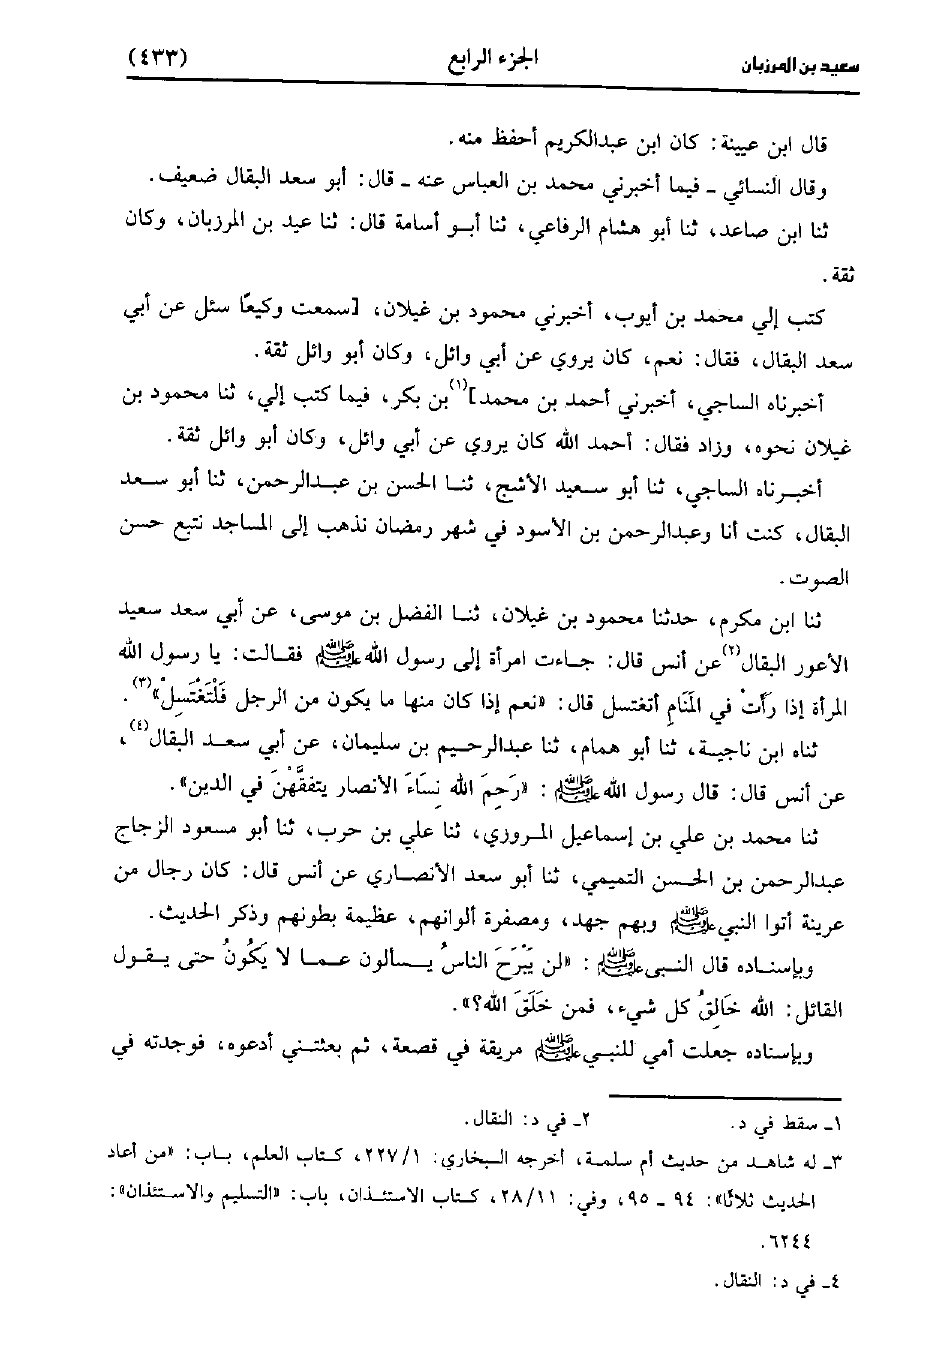 سعيد بن المرزبان الجزء الرابع (٤٣٣)
قال ابن عيينة: كان ابن عبدالكريم أحفظ منه.
وقال النسائي ـ فيما أخبرني محمد بن العباس عنه ـ قال: أبو سعد البقال ضعيف.
ثنا ابن صاعد، ثنا أبو هشام الرفاعي، ثنا أبو أسامة قال: ثنا عيد بن المرزبان، وكان
ثقة.
كتب إلي محمد بن أيوب، أخبرني محمود بن غيلان، [سمعت وكيعًا سئل عن أبي
سعد البقال، فقال: نعم، كان يروي عن أبي وائل، وكان أبو وائل ثقة.
أخبرناه الساجي، أخبرني أحمد بن محمد](١) بن بكر، فيما كتب إلي، ثنا محمود بن
غيلان نحوه، وزاد فقال: أحمد الله كان يروي عن أبي وائل، وكان أبو وائل ثقة.
أخبرناه الساجي، ثنا أبو سعيد الأشج، ثنا الحسن بن عبدالرحمن، ثنا أبو سعد
البقال، كنت أنا وعبدالرحمن بن الأسود في شهر رمضان نذهب إلى المساجد نتبع حسن
الصوت.
ثنا ابن مكرم، حدثنا محمود بن غيلان، ثنا الفضل بن موسى، عن أبي سعد سعيد
الأعور البقال(٢) عن أنس قال: جاءت امرأة إلى رسول الله ﷺ فقالت: يا رسول الله
المرأة إذا رَأَتْ في المَنَامِ أتغتسل قال: «نعم إذا كان منها ما يكون من الرجل فَلْتَغْتَسِلْ»(٣).
ثناه ابن ناجية، ثنا أبو همام، ثنا عبدالرحيم بن سليمان، عن أبي سعد البقال(٤)،
عن أنس قال: قال رسول الله ﷺ: «رَحِمَ الله نِسَاءَ الأنصار يتفقَّهْنَ في الدين».
ثنا محمد بن علي بن إسماعيل المروزي، ثنا علي بن حرب، ثنا أبو مسعود الزجاج
عبدالرحمن بن الحسن التميمي، ثنا أبو سعد الأنصاري عن أنس قال: كان رجال من
عرينة أتوا النبي ﷺ وبهم جهد، ومصفرة ألوانهم، عظيمة بطونهم وذكر الحديث.
وبإسناده قال النبي ﷺ: «لن يَبْرَحَ الناسُ يسألون عما لا يَكُونُ حتى يقول
القائل: الله خَالِقُ كل شيء، فمن خَلَقَ الله؟».
وبإسناده جعلت أمي للنبي ﷺ مريقة في قصعة، ثم بعثتني أدعوه، فوجدته في
١ـ سقط في د. ٢ـ في د: النقال.
٣ـ له شاهد من حديث أم سلمة، أخرجه البخاري: ٢٢٧/١، كتاب العلم، باب: «من أعاد
الحديث ثلاثًا»: ٩٤ ـ ٩٥، وفي: ٢٨/١١، كتاب الاستئذان، باب: «التسليم والاستئذان»:
٦٢٤٤.
٤ـ في د: النقال.